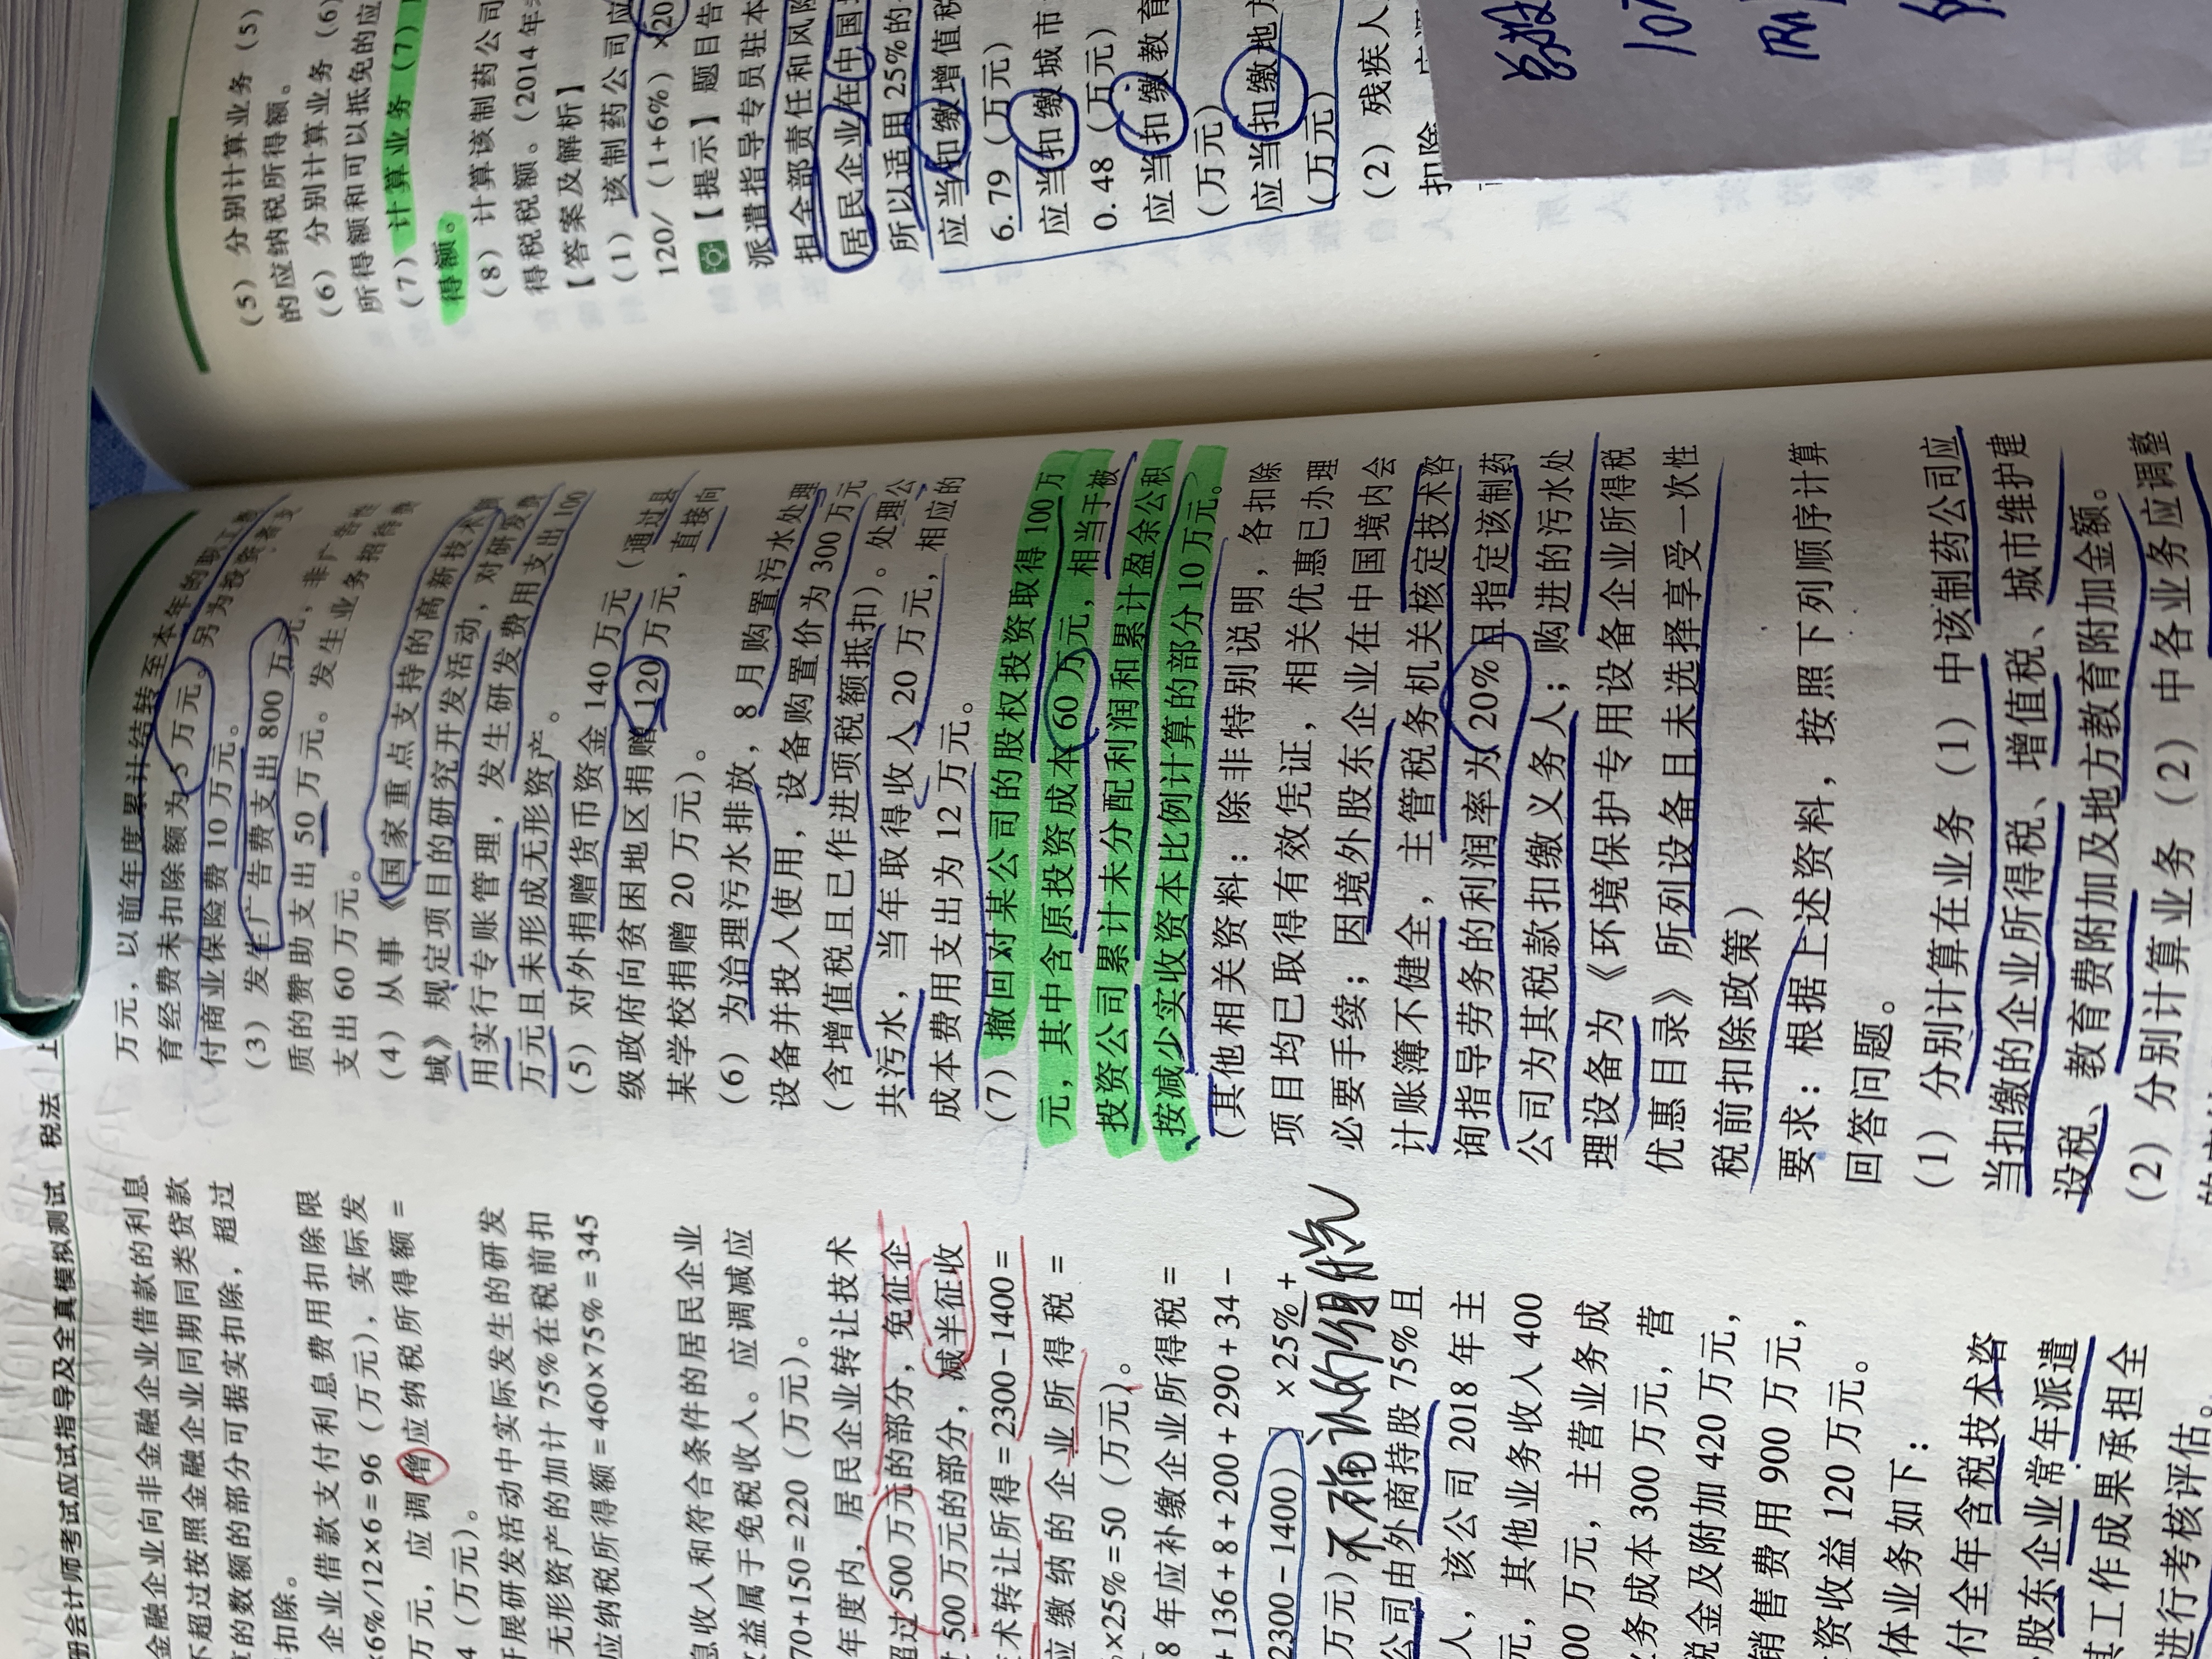 册会计师考试应试指导及全真模拟测试 税法 上
金融企业向非金融企业借款的利息
不超过按照金融企业同期同类贷款
的数额的部分可据实扣除，超过
扣除。
企业借款支付利息费用扣除限
×6%/12×6=96（万元），实际发
万元，应调增应纳税所得额=
4（万元）。
开展研发活动中实际发生的研发
无形资产的加计 75%在税前扣
应纳税所得额=460×75%=345
息收入和符合条件的居民企业
收益属于免税收入。应调减应
70+150=220（万元）。
年度内，居民企业转让技术
超过 500 万元的部分，免征企
500 万元的部分，减半征收
术转让所得=2300-1400=
应缴纳的企业所得税=
×25%=50（万元）。
8 年应补缴企业所得税=
+136+8+200+290+34-
2300-1400）］×25%+
万元）
不确认的增值税
公司由外商持股 75%且
人，该公司 2018 年主
元，其他业务收入 400
00 万元，主营业务成
务成本 300 万元，营
税金及附加 420 万元，
销售费用 900 万元，
资收益 120 万元。
体业务如下：
付全年含税技术咨
股东企业常年派遣
其工作成果承担全
进行考核评估。
万元，以前年度累计结转至本年的职工教
育经费未扣除额为 5 万元。另为投资者支
付商业保险费 10 万元。
（3）发生广告费支出 800 万元，非广告性
质的赞助支出 50 万元。发生业务招待费
支出 60 万元。
（4）从事《国家重点支持的高新技术领
域》规定项目的研究开发活动，对研发费
用实行专账管理，发生研发费用支出 100
万元且未形成无形资产。
（5）对外捐赠货币资金 140 万元（通过县
级政府向贫困地区捐赠 120 万元，直接向
某学校捐赠 20 万元）。
（6）为治理污水排放，8 月购置污水处理
设备并投入使用，设备购置价为 300 万元
（含增值税且已作进项税额抵扣）。处理公
共污水，当年取得收入 20 万元，相应的
成本费用支出为 12 万元。
（7）撤回对某公司的股权投资取得 100 万
元，其中含原投资成本 60 万元，相当于被
投资公司累计未分配利润和累计盈余公积
按减少实收资本比例计算的部分 10 万元。
（其他相关资料：除非特别说明，各扣除
项目均已取得有效凭证，相关优惠已办理
必要手续；因境外股东企业在中国境内会
计账簿不健全，主管税务机关核定技术咨
询指导劳务的利润率为 20%且指定该制药
公司为其税款扣缴义务人；购进的污水处
理设备为《环境保护专用设备企业所得税
优惠目录》所列设备且未选择享受一次性
税前扣除政策）
要求：根据上述资料，按照下列顺序计算
回答问题。
（1）分别计算在业务（1）中该制药公司应
当扣缴的企业所得税、增值税、城市维护建
设税、教育费附加及地方教育附加金额。
（2）分别计算业务（2）中各业务应调整
（5）分别计算业务（5）
的应纳税所得额。
（6）分别计算业务（6）
所得额和可以抵免的应
（7）计算业务（7）
得额。
（8）计算该制药公司
得税税额。（2014 年
【答案及解析】
（1）该制药公司应
120/（1+6%）×20
【提示】题目告
派遣指导专员驻本
担全部责任和风险
居民企业在中国
所以适用 25%的
应当扣缴增值税
6.79（万元）
应当扣缴城市
0.48（万元）
应当扣缴教育
（万元）
应当扣缴地方
（万元）
（2）残疾人
扣除